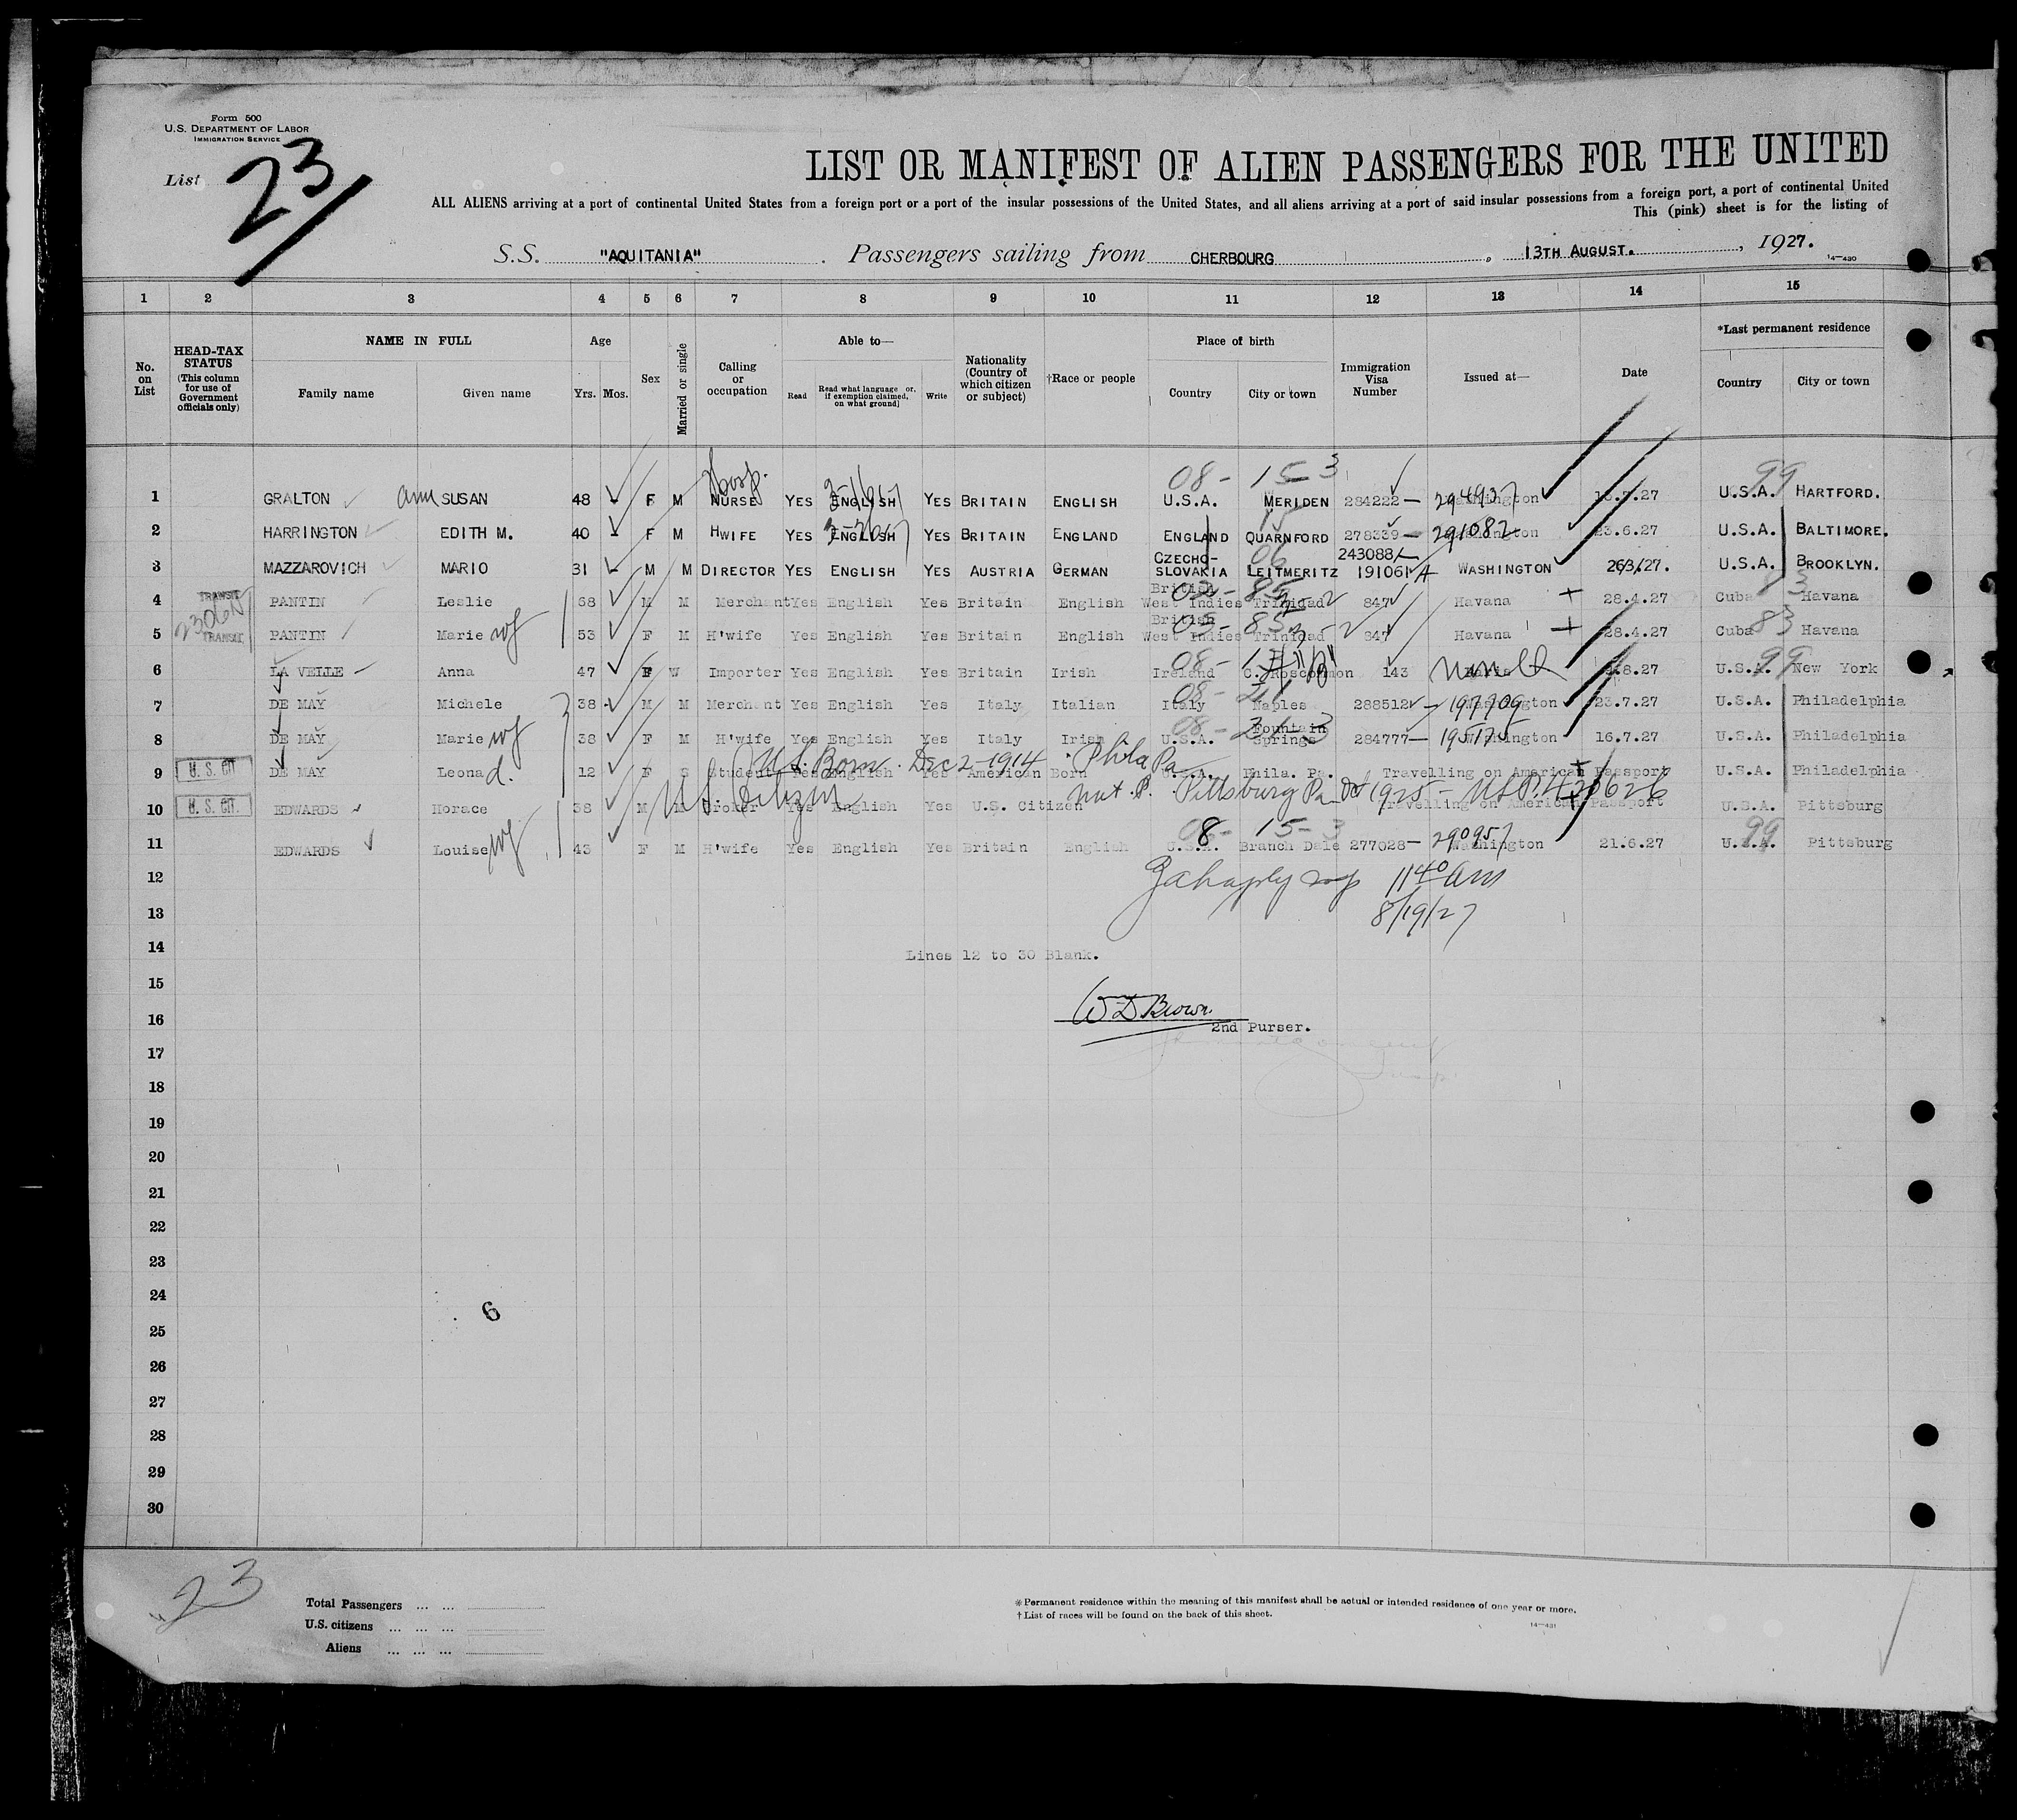 Form 500
U.S. DEPARTMENT OF LABOR
IMMIGRATION SERVICE
List 23
LIST OR MANIFEST OF ALIEN PASSENGERS FOR THE UNITED
ALL ALIENS arriving at a port of continental United States from a foreign port or a port of the insular possessions of the United States, and all aliens arriving at a port of said insular possessions from a foreign port, a port of continental United
This (pink) sheet is for the listing of
S.S. "AQUITANIA" . Passengers sailing from CHERBOURG , 13TH AUGUST. , 1927.
14—430
1 2 3 4 5 6 7 8 9 10 11 12 13 14 15
No. on List HEAD-TAX STATUS (This column for use of Government officials only) NAME IN FULL Family name Given name Age Yrs. Mos. Sex Married or single Calling or occupation Able to— Read Read what language or, if exemption claimed, on what ground] Write Nationality (Country of which citizen or subject) †Race or people Place of birth Country City or town Immigration Visa Number Issued at— Date *Last permanent residence Country City or town
Hosp. 08 - 15 - 3 99
1 GRALTON Ann SUSAN 48 F M NURSE YES ENGLISH YES BRITAIN ENGLISH U.S.A. MERIDEN 284222 — 294937 .7.27 U.S.A. HARTFORD.
2 HARRINGTON EDITH M. 40 F M HWIFE YES ENGLISH YES BRITAIN ENGLAND ENGLAND QUARNFORD 278339 — 291082 23.6.27 U.S.A. BALTIMORE.
3 MAZZAROVICH MARIO 31 M M DIRECTOR YES ENGLISH YES AUSTRIA GERMAN CZECHO-SLOVAKIA LEITMERITZ 243088/- 191061 A WASHINGTON 26/3/27. U.S.A. BROOKLYN.
4 TRANSIT PANTIN Leslie 68 M M Merchant Yes English Yes Britain English British West Indies Trinidad 847 Havana 28.4.27 Cuba Havana
5 TRANSIT PANTIN Marie wf 53 F M H'wife Yes English Yes Britain English British West Indies Trinidad 847 Havana 28.4.27 Cuba Havana
6 LA VELLE Anna 47 F W Importer Yes English Yes Britain Irish Ireland C. Roscommon 143 .8.27 U.S.A. New York
7 DE MAY Michele 38 M M Merchant Yes English Yes Italy Italian Italy Naples 288512 — 197709 Washington 23.7.27 U.S.A. Philadelphia
8 DE MAY Marie wf 38 F M H'wife Yes English Yes Italy Irish U.S.A. Fountain Springs 284777— 195175 Washington 16.7.27 U.S.A. Philadelphia
U.S. Born. Dec 2 - 1914 Phila Pa
9 U.S. CIT. DE MAY Leona d. 12 F S Student Yes English Yes American Born U.S.A. Phila. Pa. Travelling on American Passport U.S.A. Philadelphia
U.S. Citizen Nat. P. Pittsburg Pa Oct 1925 - U.S.P. 420626
10 U.S. CIT. EDWARDS Horace 38 M M Broker Yes English Yes U.S. Citizen Travelling on American Passport U.S.A. Pittsburg
8 - 15 - 3 99
11 EDWARDS Louise wf 43 F M H'wife Yes English Yes Britain English U.S.A. Branch Dale 277028— 290957 Washington 21.6.27 U.S.A. Pittsburg
12 1140 am
13 8/19/27
14 Lines 12 to 30 Blank.
15
16 W D Brown.
2nd Purser.
17
18
19
20
21
22
23
24
6
25
26
27
28
29
30
23
Total Passengers ... ...
U.S. citizens ... ... ...
Aliens ... ... ...
*Permanent residence within the meaning of this manifest shall be actual or intended residence of one year or more.
†List of races will be found on the back of this sheet.
14—431